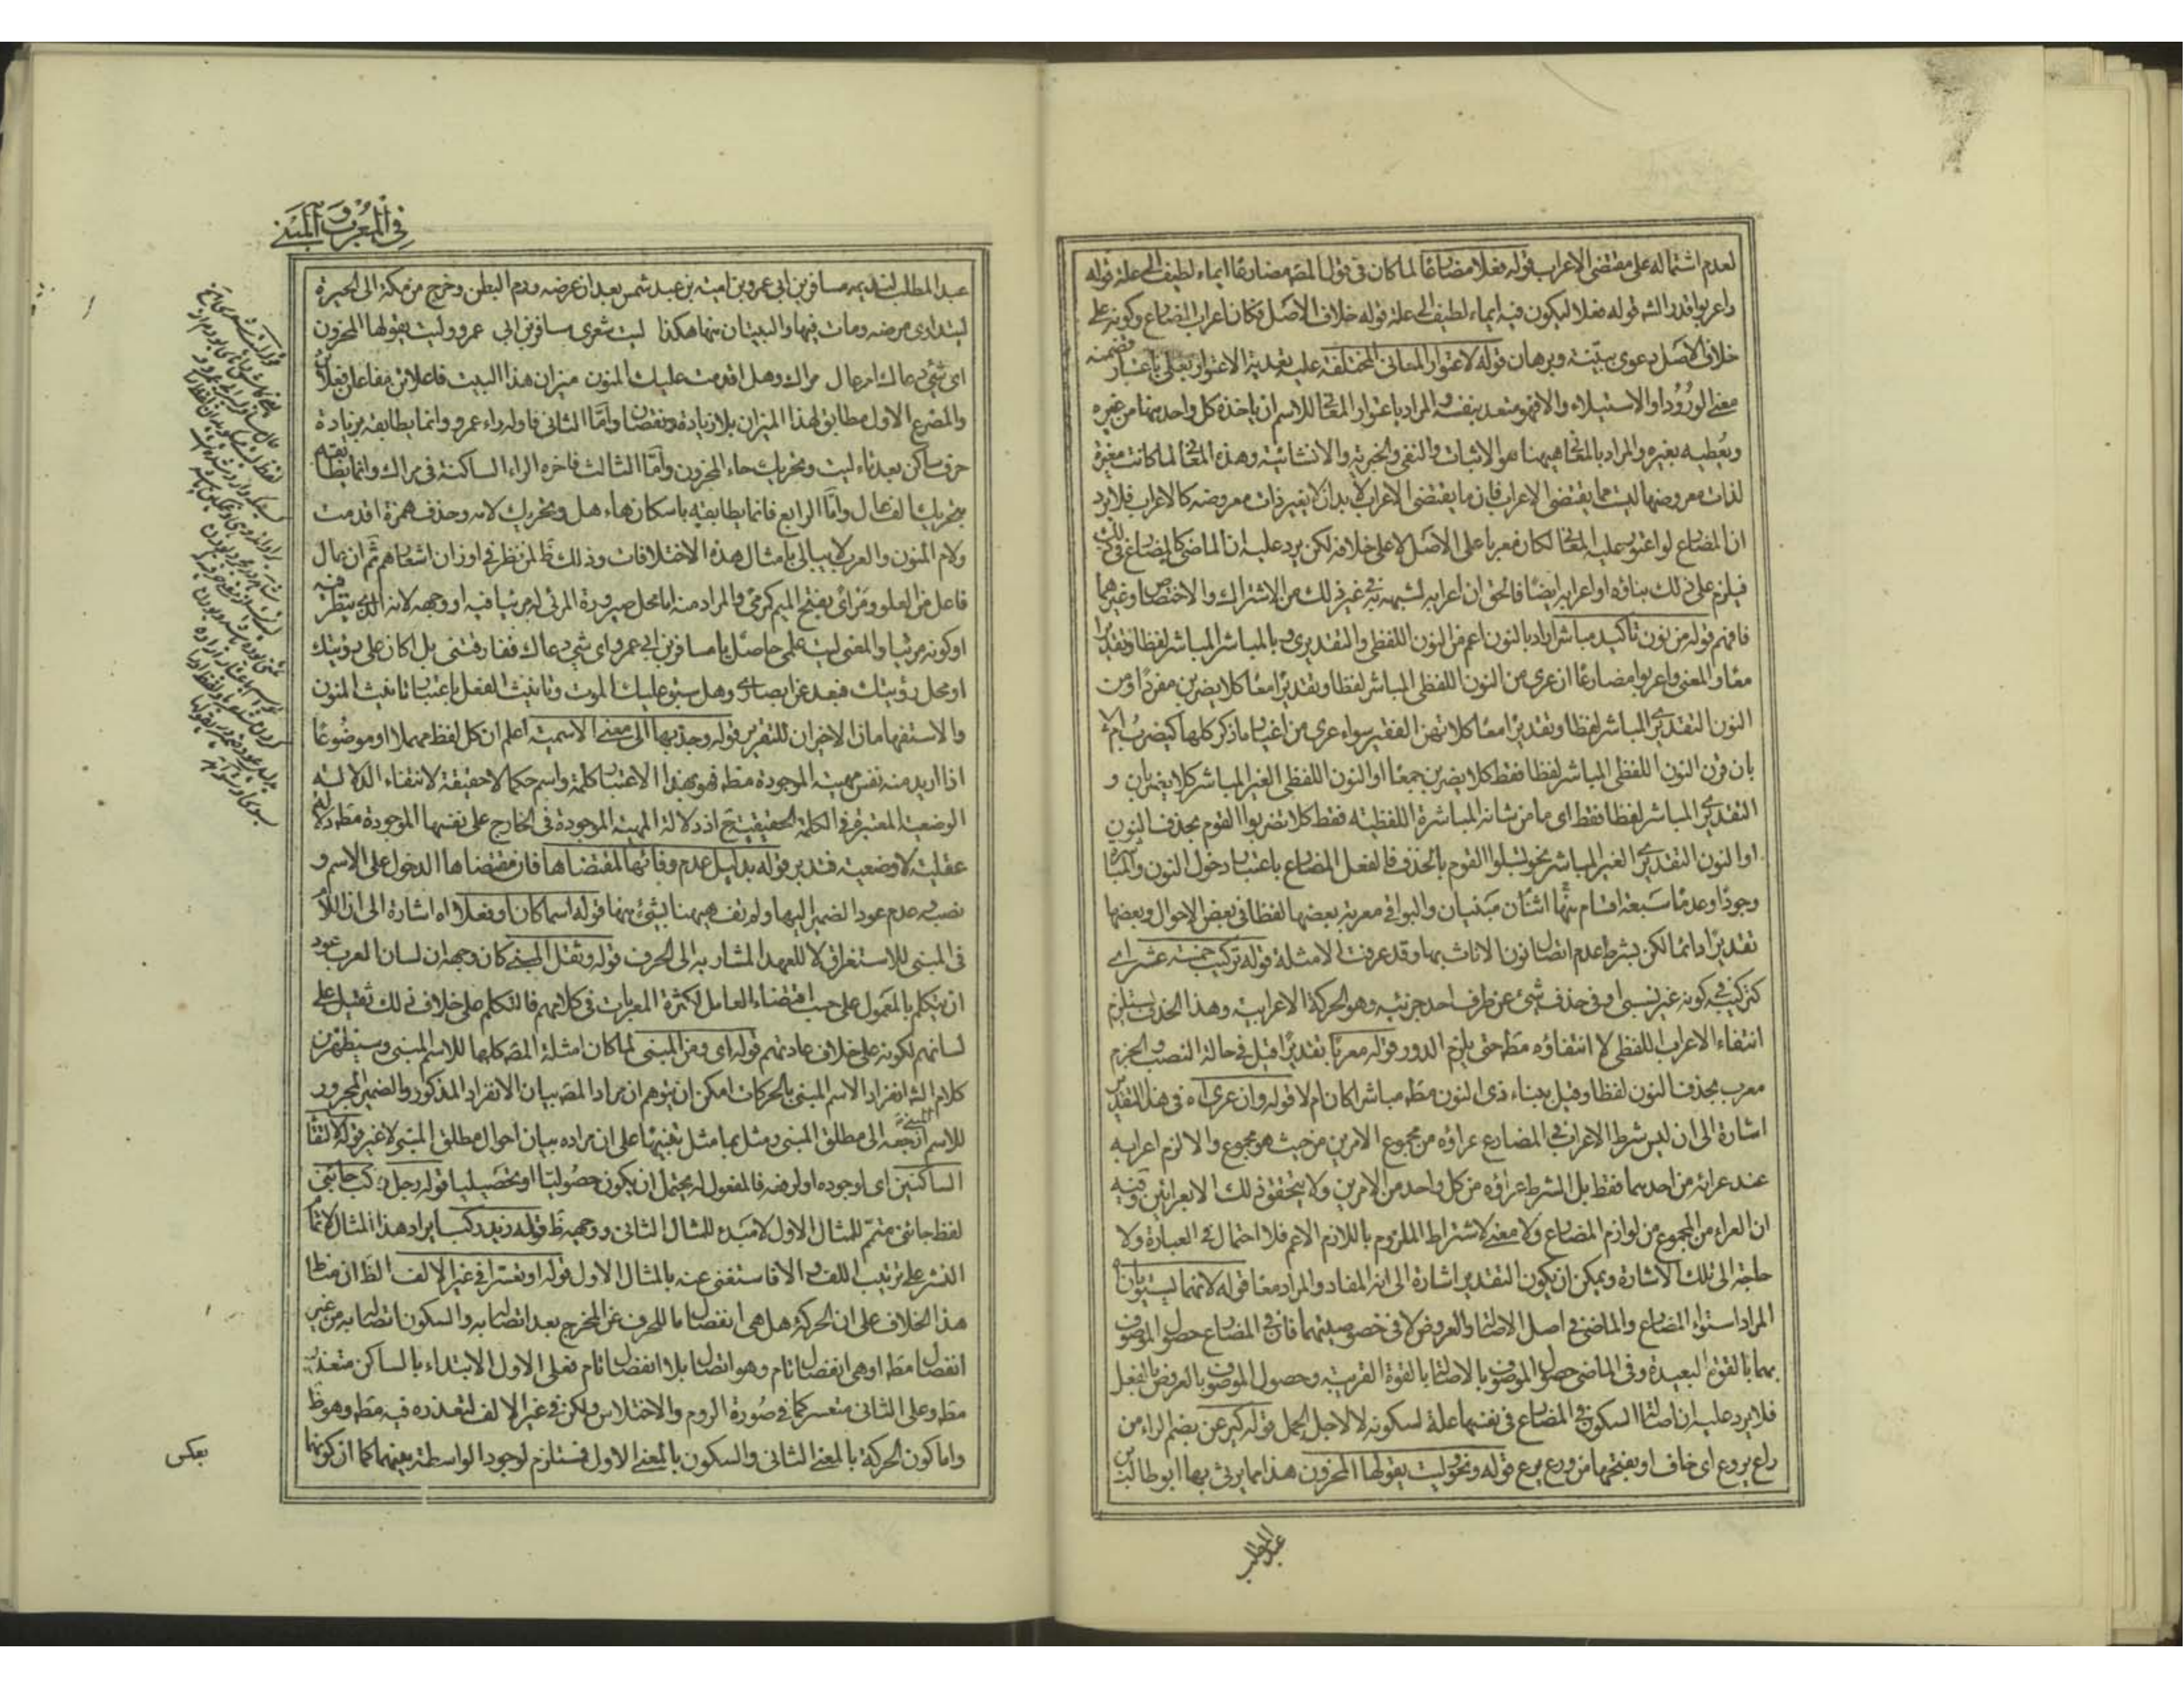 لعدم اشتماله على مقتضى الاعراب قوله فعلا مضارعا لما كان فى قول المصه مضارعا ايماء لطيف الى علة قوله
واعربوا قدر الشه قوله فعلا ليكون فيه ايماء لطيف الى علة قوله خلاف الاصل فكان اعراب المضارع وكونه على
خلاف الاصل دعوى ببينة وبرهان قوله لاعتوار المعانى المختلفة عليه تعدية الاعتوار بعلى باعتبار تضمنه
معنى الورود او الاستيلاء والا فهو متعد بنفسه والمراد باعتوار المعانى للاسم ان ياخذه كل واحد منها من غيره
ويعطيه بغيره والمراد بالمعانى هيهنا هو الاثبات والنفى والخبرية والانشائية وهذه المعانى لما كانت مغيرة
لذات معروضها ليست مما يقتضى الاعراب فان ما يقتضى الاعراب لا بد ان لا يغير ذات معروضه كالاعراب فلا يرد
ان المضارع لو اعتور عليه المعانى لكان معربا على الاصل لا على خلافه لكن يرد عليه ان الماضى كالمضارع فى ذلك
فيلزم على ذلك بناؤه او اعرابه ايضا فالحق ان اعرابه لشبهه به فى غير ذلك من الاشتراك والاختصاص وغيرهما
فافهم قوله من نون تاكيد مباشر اراد بالنون اعم من النون اللفظى والتقديرى وبالمباشر المباشر لفظا وتقديرا
معا والمعنى واعربوا مضارعا ان عرى من النون اللفظى المباشر لفظا وتقديرا معا كلا يضربن مفردا ومن
النون التقديرى المباشر لفظا وتقديرا معا كلا تهين الفقير سواء عرى من اغيار ما ذكر كلها كيضرب ام لا
بان قرن النون اللفظى المباشر لفظا فقط كلا يضربن جمعا او النون اللفظى الغير المباشر كلا يضربان و
التقديرى المباشر لفظا فقط اى ما من شانه المباشرة اللفظية فقط كلا تضربوا القوم بحذف النون
او النون التقديرى الغير المباشر نحو لتبلوا القوم بالحذف فالفعل المضارع باعتبار دخول النون والمباشرة
وجودا وعدما سبعة اقسام منها اثنان مبنيان والبواقى معربة بعضها لفظا فى بعض الاحوال وبعضها
تقديرا دائما لكن بشرط عدم اتصال نون الاناث بها وقد عرفت الامثلة قوله تركيب خمسة عشر اى
كتركيبه فى كونه غير نسبى او فى حذف شئ عن طرف احد جزئيه وهو الحركة الاعرابية وهذا الحذف يستلزم
انتفاء الاعراب اللفظى لا انتفاؤه مطه حتى يلزم الدور قوله معربا تقديرا قيل فى حالة النصب والجزم
معرب بحذف النون لفظا وقيل ببناء ذى النون مطه مباشرا كان ام لا قوله وان عرى اه فى هذا التقدير
اشارة الى ان ليس شرط الاعراب فى المضارع عراؤه من مجموع الامرين من حيث هو مجموع والا لزم اعرابه
عند عرائه من احدهما فقط بل الشرط عراؤه من كل واحد من الامرين ولا يتحقق ذلك الا بعرائين وفيه
ان العراء من المجموع من لوازم المضارع ولا معنى لاشتراط الملزوم باللازم الاعم فلا احتمال فى العبارة ولا
حاجة الى تلك الاشارة ويمكن ان يكون التقدير اشارة الى انه المفاد والمراد معا قوله لانهما ليستويان
المراد استواء المضارع والماضى فى اصل الاصالة والعروض لا فى خصوصيتهما فان فى المضارع حصول الموصوف
بهما بالقوة البعيدة وفى الماضى حصول الموصوف بالاصالة بالقوة القريبة وحصول الموصوف بالعروض بالفعل
فلا يرد عليه ان اصالة السكون فى المضارع فى نفسها علة لسكونه لا لاجل الحمل قوله كيرعن بضم الراء من
راع يروع اى خاف او بفتحها من ورع يرع قوله ونحو ليت يقولها المحزون هذا مما يرثى بها ابو طالب بن
عبد المطلب
فى المعرب والمبنى
عبد المطلب لنديمه مسافر بن ابى عمرو بن امية بن عبد شمس بعد ان عرضه ورم البطن وخرج من مكة الى الحيرة
ليتداوى مرضه ومات فيها والبيتان منها هكذا ليت شعرى مسافر بن ابى عمرو وليت يقولها المحزون
اى شئ دهاك ام عال مراك وهل اقدمت عليك المنون ميزان هذا البيت فاعلاتن مفاعلن فعلاتن
والمصرع الاول مطابق لهذا الميزان بلا زيادة ونقصان واما الثانى فاوله راء عمرو وانما يطابقه بزيادة
حرف ساكن بعد تاء ليت وتحريك حاء المحزون واما الثالث فاخره الراء الساكنة فى مراك وانما يطابقه
بتحريك الف عال واما الرابع فانما يطابقه باسكان هاء هل وتحريك لامه وحذف همزة اقدمت
ولام المنون والعرب لا يبالى بامثال هذه الاختلافات وذلك ظ لمن نظر فى اوزان اشعارهم ثم ان عال
فاعل من العلو ومراى بفتح الميم كرمى والمراد منه اما محل صيرورة المرئى له مرئيا فيه او وجهه لانه الذى ينظر فيه
او كونه مرئيا والمعنى ليت علمى حاصل يا مسافر بن ابى عمرو اى شئ دعاك ففارقتنى بل اكان على رؤيتك
او محل رؤيتك فبعد عن ابصارى وهل سبق عليك الموت وتانيث الفعل باعتبار تانيث المنون
والاستفهامان الاخيران للتقرير قوله وجذبها الى معنى الاسمية اعلم ان كل لفظ مهملا او موضوعا
اذا اريد منه نفس مهيته الموجودة مطه فهو بهذا الاعتبار كلمة واسم حكما لا حقيقة لانتفاء الدلالة
الوضعية المعتبرة فى الكلمة الحقيقية ح اذ دلالة المهية الموجودة فى الخارج على نفسها الموجودة مطه دلالة
عقلية لا وضعية فتدبر قوله بدليل عدم وفائها لمقتضاها فان مقتضاها الدخول على الاسم و
نصبه وعدم عود الضمير اليها ولم تف هيهنا بشئ منها قوله اسما كان او فعلا اه اشارة الى ان اللام
فى المبنى للاستغراق لا للعهد المشار به الى الحرف قوله وثقل المبنى كان وجهه ان لسان العرب عود
ان يتكلم بالمعمول على حسب اقتضاء العامل لكثرة المعربات فى كلامهم فالتكلم على خلاف ذلك ثقيل على
لسانهم لكونه على خلاف عادتهم قوله اى ومن المبنى لما كان امثلة المصه كلها للاسم المبنى وسيظهر من
كلام الشه انفراد الاسم المبنى بالحركات امكن ان يتوهم ان مراد المصه بيان الانفراد المذكور والضمير المجرور
للاسم المبنى ارجعه الى مطلق المبنى ومثل بما مثل تنبيها على ان مراده بيان احوال مطلق المبنى لا غير قوله لالتقاء
الساكنين اى لوجوده او لرفعه فالمفعول له يحتمل ان يكون حصوليا او تحصيليا قوله رجل ركب جائنى
لفظ جائنى متمم للمثال الاول لا مبدء للمثال الثانى ووجهه ظ قوله زيد ركب ايراد هذا المثال لاتمام
النشر على ترتيب اللف والا فاستغنى عنه بالمثال الاول قوله او تعسرا فى غير الالف الظ ان مناط
هذا الخلاف على ان الحركة هل هى انفصال ما للحرف عن المخرج بعد اتصاله به والسكون اتصاله به من غير
انفصال مطه او هى انفصال تام وهو اتصال بلا انفصال تام فعلى الاول الابتداء بالساكن متعذر
مطه وعلى الثانى متعسر كما فى صورة الروم والاختلاس ولكن فى غير الالف لتعذره فيه مطه وهو ظ
واما كون الحركة بالمعنى الثانى والسكون بالمعنى الاول فستلزم لوجود الواسطة بينهما كما ان كونهما
بعكس